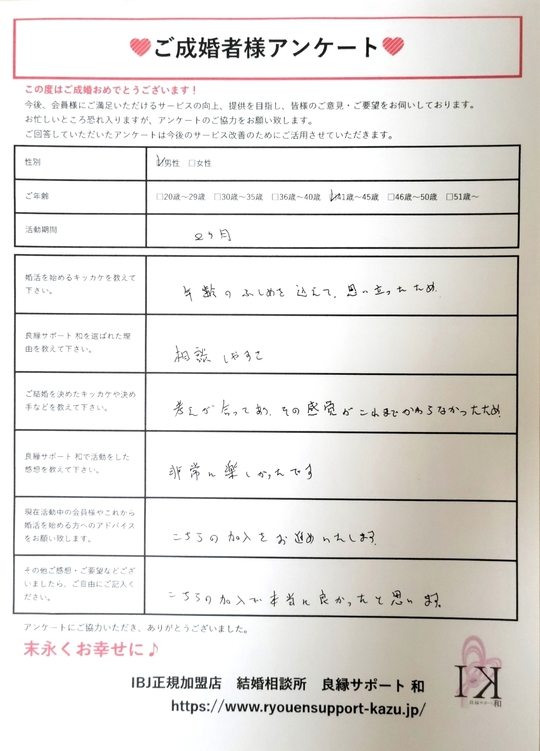 ご成婚者様アンケート
この度はご成婚おめでとうございます！
今後、会員様にご満足いただけるサービスの向上、提供を目指し、皆様のご意見・ご要望をお伺いしております。
お忙しいところ恐れ入りますが、アンケートのご協力をお願い致します。
ご回答していただいたアンケートは今後のサービス改善のためにご活用させていただきます。
性別
☑男性 □女性
ご年齢
□20歳～29歳 □30歳～35歳 □36歳～40歳 ☑41歳～45歳 □46歳～50歳 □51歳～
活動期間
ヶ月
婚活を始めるキッカケを教えて
下さい。
年齢のふしめを込えて、思い立ったため.
良縁サポート 和を選ばれた理
由を教えて下さい。
相談しやすさ
ご結婚を決めたキッカケや決め
手などを教えて下さい。
考えが合っており、その感覚がこれまでかわらなかったため.
良縁サポート 和で活動をした
感想を教えて下さい。
非常に楽しかったです
現在活動中の会員様やこれから
婚活を始める方へのアドバイス
をお願い致します。
こちらの加入をお進めいたします.
その他ご感想・ご要望などござ
いましたら、ご自由にご記入く
ださい。
こちらの加入で本当に良かったと思います.
アンケートにご協力いただき、ありがとうございました。
末永くお幸せに♪
IBJ正規加盟店 結婚相談所 良縁サポート 和
https://www.ryouensupport-kazu.jp/
良縁サポート 和